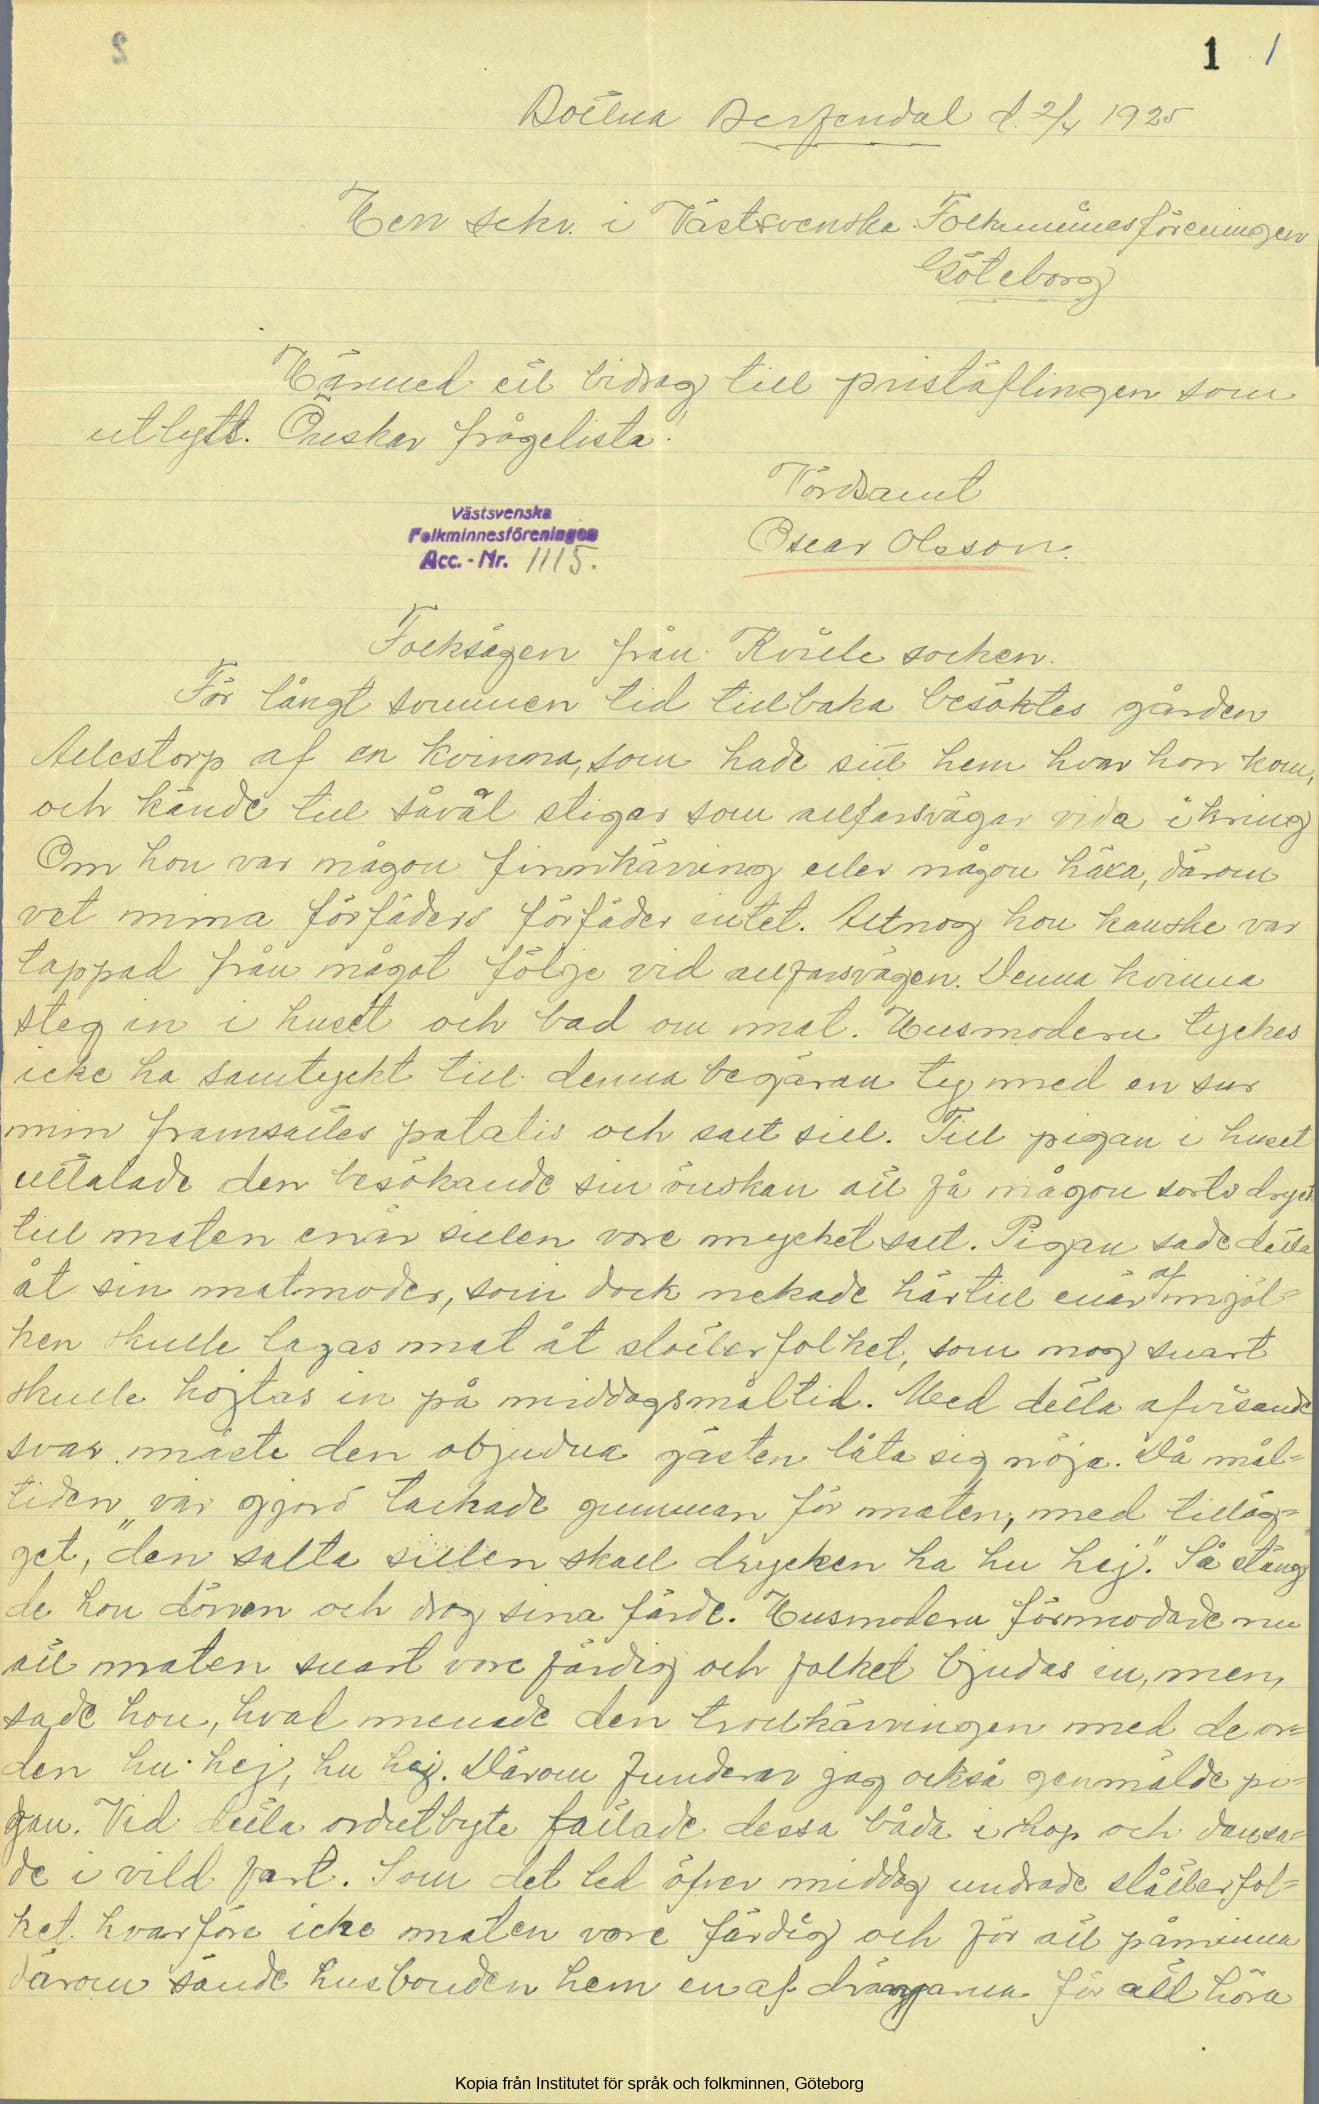 1 /
2
Bottna Berfendal d. 2/4 1925
Herr sekr. i Västsvenska Folkminnesföreningen
Göteborg
Härmed ett bidrag till pristäflingen som
utlysts. Önskar frågelista.
Vördsamt
Oscar Olsson.
Västsvenska
Folkminnesföreningen
Acc.-Nr. 1115.
Folksägen från Kville socken.
För långt sommen tid tillbaka besöktes gården
Allestorp af en kvinna, som hade sitt hem hvar hon kom,
och kände till såväl stigar som allfarsvägar vida i kring
Om hon var någon finnkärring eller någon häxa, därom
vet mina förfäders förfäder intet. Altnog hon kanske var
tappad från något följe vid allfarsvägen. Denna kvinna
steg in i huset och bad om mat. Husmodern tyckes
icke ha samtyckt till denna begäran ty med en sur
min framsattes potatis och salt sill. Till pigan i huset
uttalade den besökande sin önskan att få någon sorts dryck
till maten enär sillen vore mycket salt. Pigan sade detta
åt sin matmoder, som dock nekade härtill enär af mjöl=
ken skulle lagas mat åt slåtterfolket, som nog snart
skulle hojtas in på middagsmåltid. Med detta afvisande
svar måste den objudna gästen låta sig nöja. Då mål=
tiden var gjord tackade gumman för maten, med tilläg=
get, "den salta sillen skall drycken ha hu hej". Så stäng
de hon dörren och drog sina färde. Husmodern förmodade nu
att maten snart vore färdig och folket bjudas in, men,
sade hon, hvad menade den trollkärringen med de or=
den hu hej, hu hej. Därom funderar jag också genmälde pi=
gan. Vid detta ordutbyte fattade dessa båda i hop och dansa=
de i vild fart. Som det led öfver middag undrade slåtterfol=
ket hvarföre icke maten vore färdig och för att påminna
därom sände husbonden hem en af drängarna för att höra
Kopia från Institutet för språk och folkminnen, Göteborg